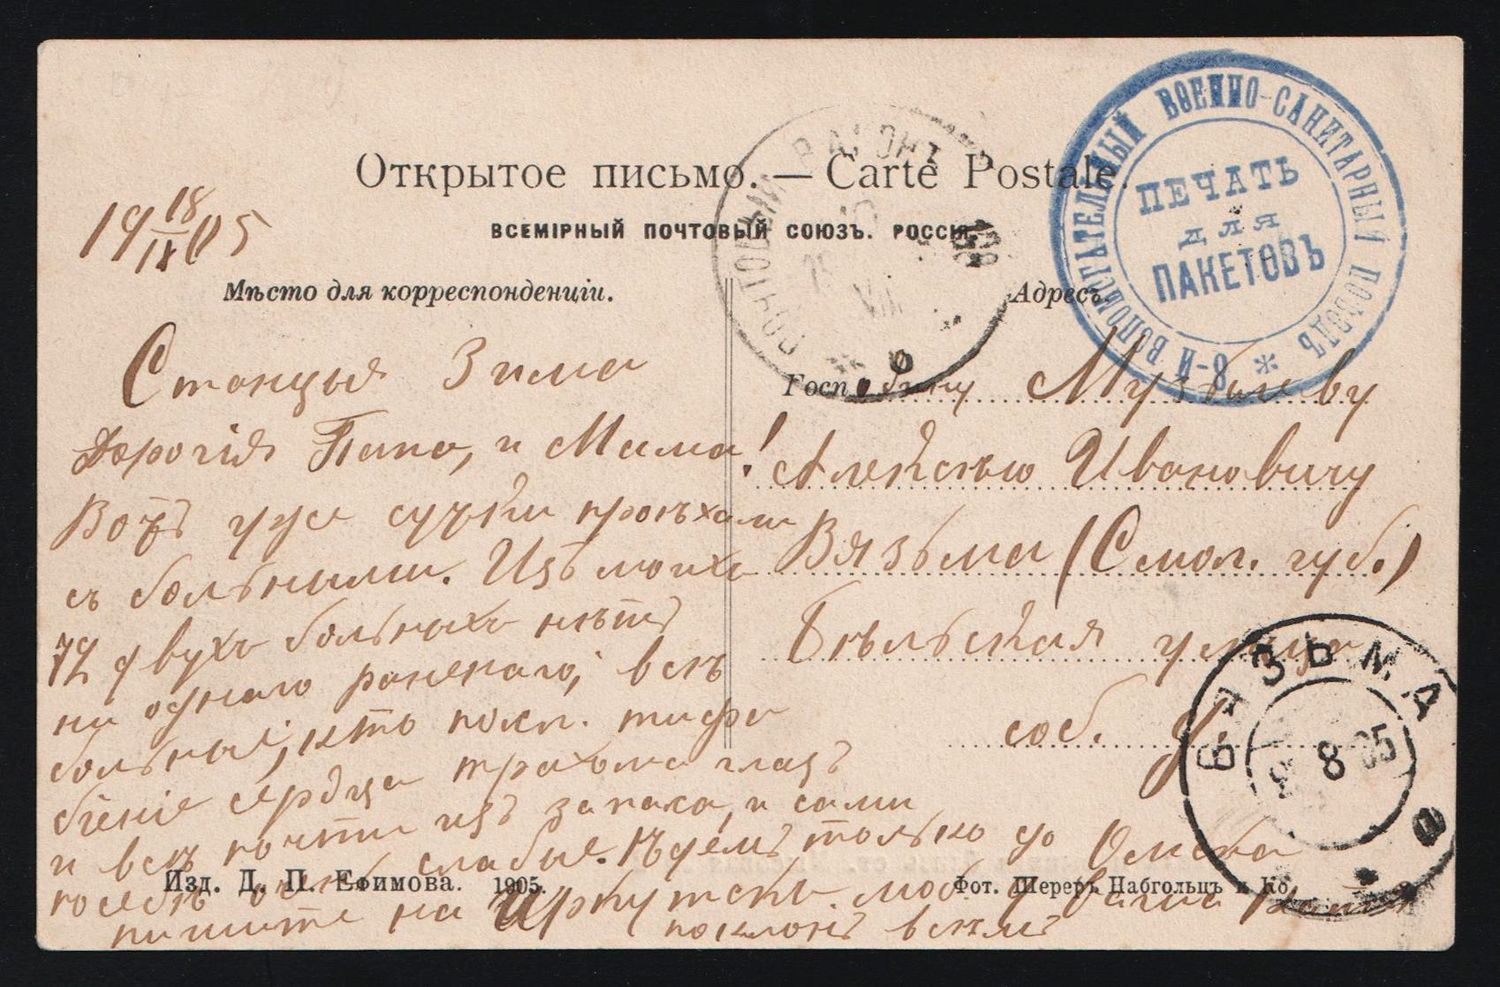 Открытое письмо. — Carte Postale.
ВСЕМІРНЫЙ ПОЧТОВЫЙ СОЮЗЪ. РОССІЯ.
19 18/IX 05
Мѣсто для корреспонденціи.
Адресъ.
8-Й ВСПОМОГАТЕЛЬНЫЙ ВОЕННО-САНИТАРНЫЙ ПОѢЗДЪ *
ПЕЧАТЬ
для
ПАКЕТОВЪ
ПОЧТОВЫЙ ВАГОНЪ
Станцыя Зима
Дорогія Папа, и Мама!
Вотъ уже сутки проѣхали
съ больными. Изъ моихъ
72 двухъ больныхъ нѣтъ
ни одного раненаго, всѣ
больные, кто тифа
біеніе сердца трахома глазъ
и всѣ почти изъ запаса, и сами
по себѣ очень слабые. Ѣдемъ только до Омска
пишите на Иркутскъ.
поклонъ всѣмъ
Госп
Алексѣю Ивановичу
Вязьма (Смол. губ.)
Бѣльская улица
соб. д.
ВЯЗЬМА
8 05
Изд. Д. П. Ефимова. 1905.
Фот. Шереръ Набгольцъ и Ко.